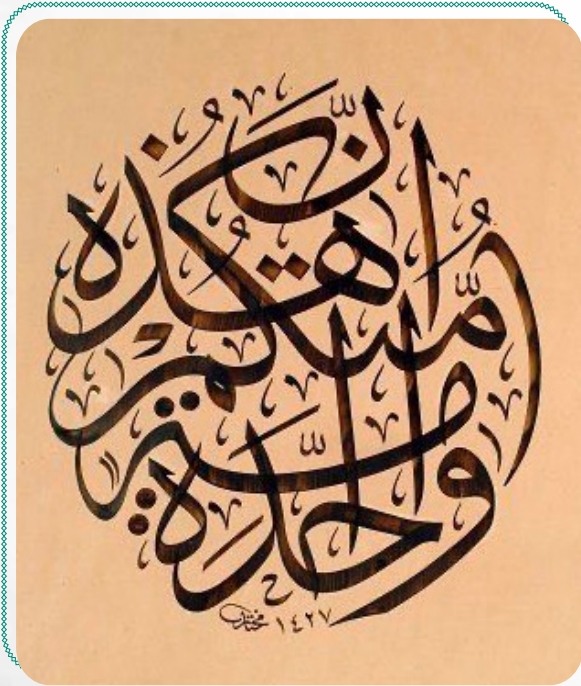 إن هذه أمتكم أمة واحدة
١٤٢٧